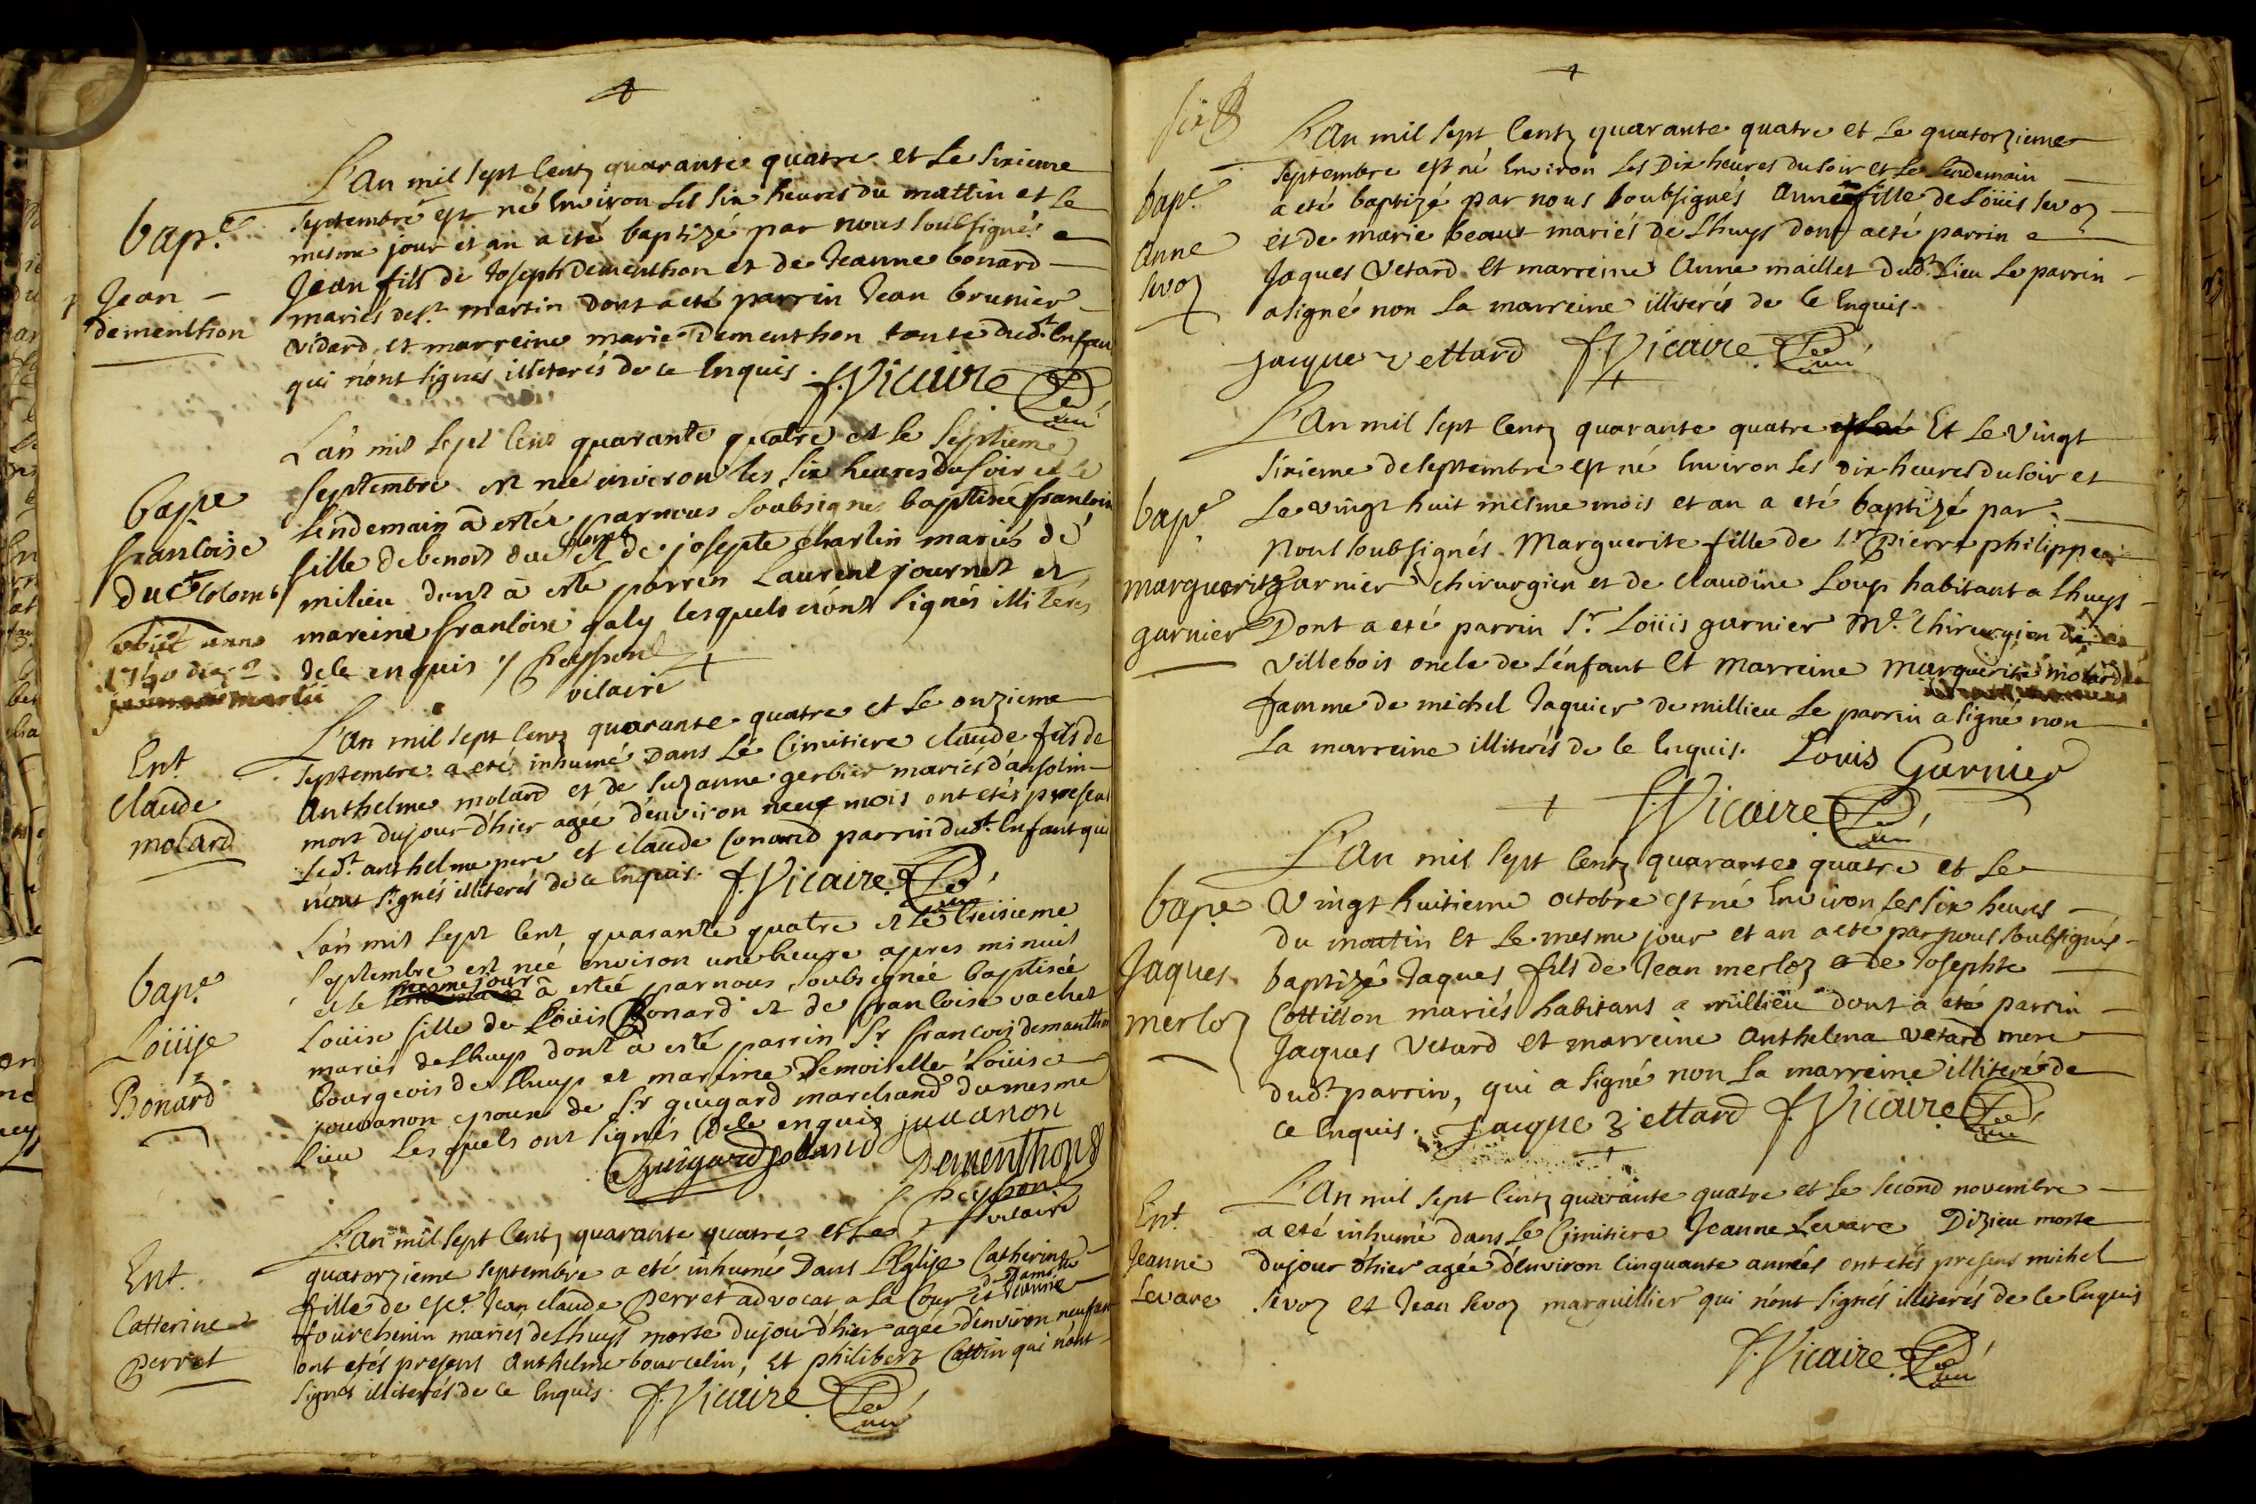 Bap.e
Jean
dementhon
L'an mil sept Centz quarante quatre et Le sixieme
septembre est né Environ les six heures du mattin et Le
mesme jour et an a eté baptizé par nous soubsignés
Jean fils de Joseph dementhon et de Jeanne bonard
mariés de St. martin Dont a eté parrin Jean brunier
vidard et marreine marie Dementhon tante dudt. Enfan
qui n'ont signés illiterés de ce Enquis. f. Vicaire Curé
Bape
francoise
du Colomb
obiit anno
L'an mil sept Cent quarante quatre et le septieme
septembre est née environ les six heures du soir et le
lendemain à estéé par nous soubsignes baptisée francoise
fille de benoit du colomb et de josepte charlin mariés de
milieu dont à esté parrin Laurent journet et
mareine francoise galy lesquels n'ont signés illiterés
de le enquis
vicaire
Ent.
Claude
molard
L'an mil sept Centz quarante quatre et Le onzieme
septembre a eté inhumé Dans Le Cimitiere Claude fils de
Anthelme molard et de suzanne gerbier mariés d'ansolin
mort dujour d'hier agée d'environ neuf mois ont etés presens
Ledt. anthelme pere et Claude Conand parrin dudt. Enfant qui
n'ont signés illiterés de ce Enquis. f. Vicaire Curé
bape.
Loüise
Bonard
L'an mil sept Cent quarante quatre et le treisieme
septembre est néé environ une heure apres minuit
et le mesme jour à estéé par nous soubsignéé baptisée
Loüise fille de Loüis Bonard et de francoise vachet
mariés de Lhuys dont à esté parrin Sr. francois demanthon
bourgeois de Lhuys et mareine Demoiselle Loüise
jouvanon epouse de Sr. guigard marchand du mesme
lieu Lesquels ont signés de le enquis juvanon
Guigard Dementhon
vicaire
Ent.
Catterine
perret
L'an mil sept Centz quarante quatre et Le
quatorzieme septembre a eté inhumé Dans L'Eglise Catherine
fille de Jean Claude Perret advocat a la Cour et de Dame Jeanne
fourchenin mariés de Lhuys morte dujour d'hier agée d'environ neuf ans
ont etés presens Anthelme bourcelin, Et philibert Cattin qui n'ont
signés illiterés de ce Enquis. f. Vicaire Curé
bape.
Anne
sevoz
L'An mil sept Centz quarante quatre et Le quatorzieme
septembre est né Environ Les Dix heures du soir et Le Lendemain
a eté baptizé par nous soubsignés Anne fille de Loüis sevoz
et de marie beaux mariés de Lhuys dont a eté parrin
Jaques Vetard Et marreine Anne maillet dudt. Lieu Le parrin
a signé non La marreine illiterés de ce Enquis.
jacque vettard f. Vicaire Curé
bape
marguerite
garnier
L'An mil sept Centz quarante quatre Et Le vingt
sixieme de septembre est né Environ Les dix heures du soir et
Le vingt huit mesme mois et an a eté baptizé par
nous soubsignés Marguerite fille de Sr. pierre philippe
garnier Chirurgien et de Claudine Loup habitant a Lhuys
Dont a eté parrin Sr. Loüis garnier Me. Chirurgien de
Villebois oncle de L'enfant Et marreine marguerite molard
famme de michel Jaquier de millieu Le parrin a signé non
La marreine illiterés de ce Enquis. Louis Garnier
f. Vicaire Curé
bape
Jaques
merloz
L'An mil sept Centz quarante quatre et Le
vingt huitieme octobre est né Environ Les six heures
du mattin Et Le mesme jour et an a eté par nous soubsignés
baptizé Jaques fils de Jean merloz et de Josephte
Cottillon mariés habitans a millieu dont a eté parrin
Jaques Vetard Et marreine Anthelma Vetard mere
dudt. parrin, qui a signé non La marreine illiterés de
ce Enquis. jacque vettard f. Vicaire Curé
Ent.
Jeanne
Levare
L'An mil sept Centz quarante quatre et Le second novembre
a eté inhumé dans Le Cimitiere Jeanne Levare Dizieu morte
dujour d'hier agée d'Environ Cinquante années ont etés presens michel
sevoz Et Jean sevoz marguillier qui n'ont signés illiterés de ce Enquis
f. Vicaire Curé